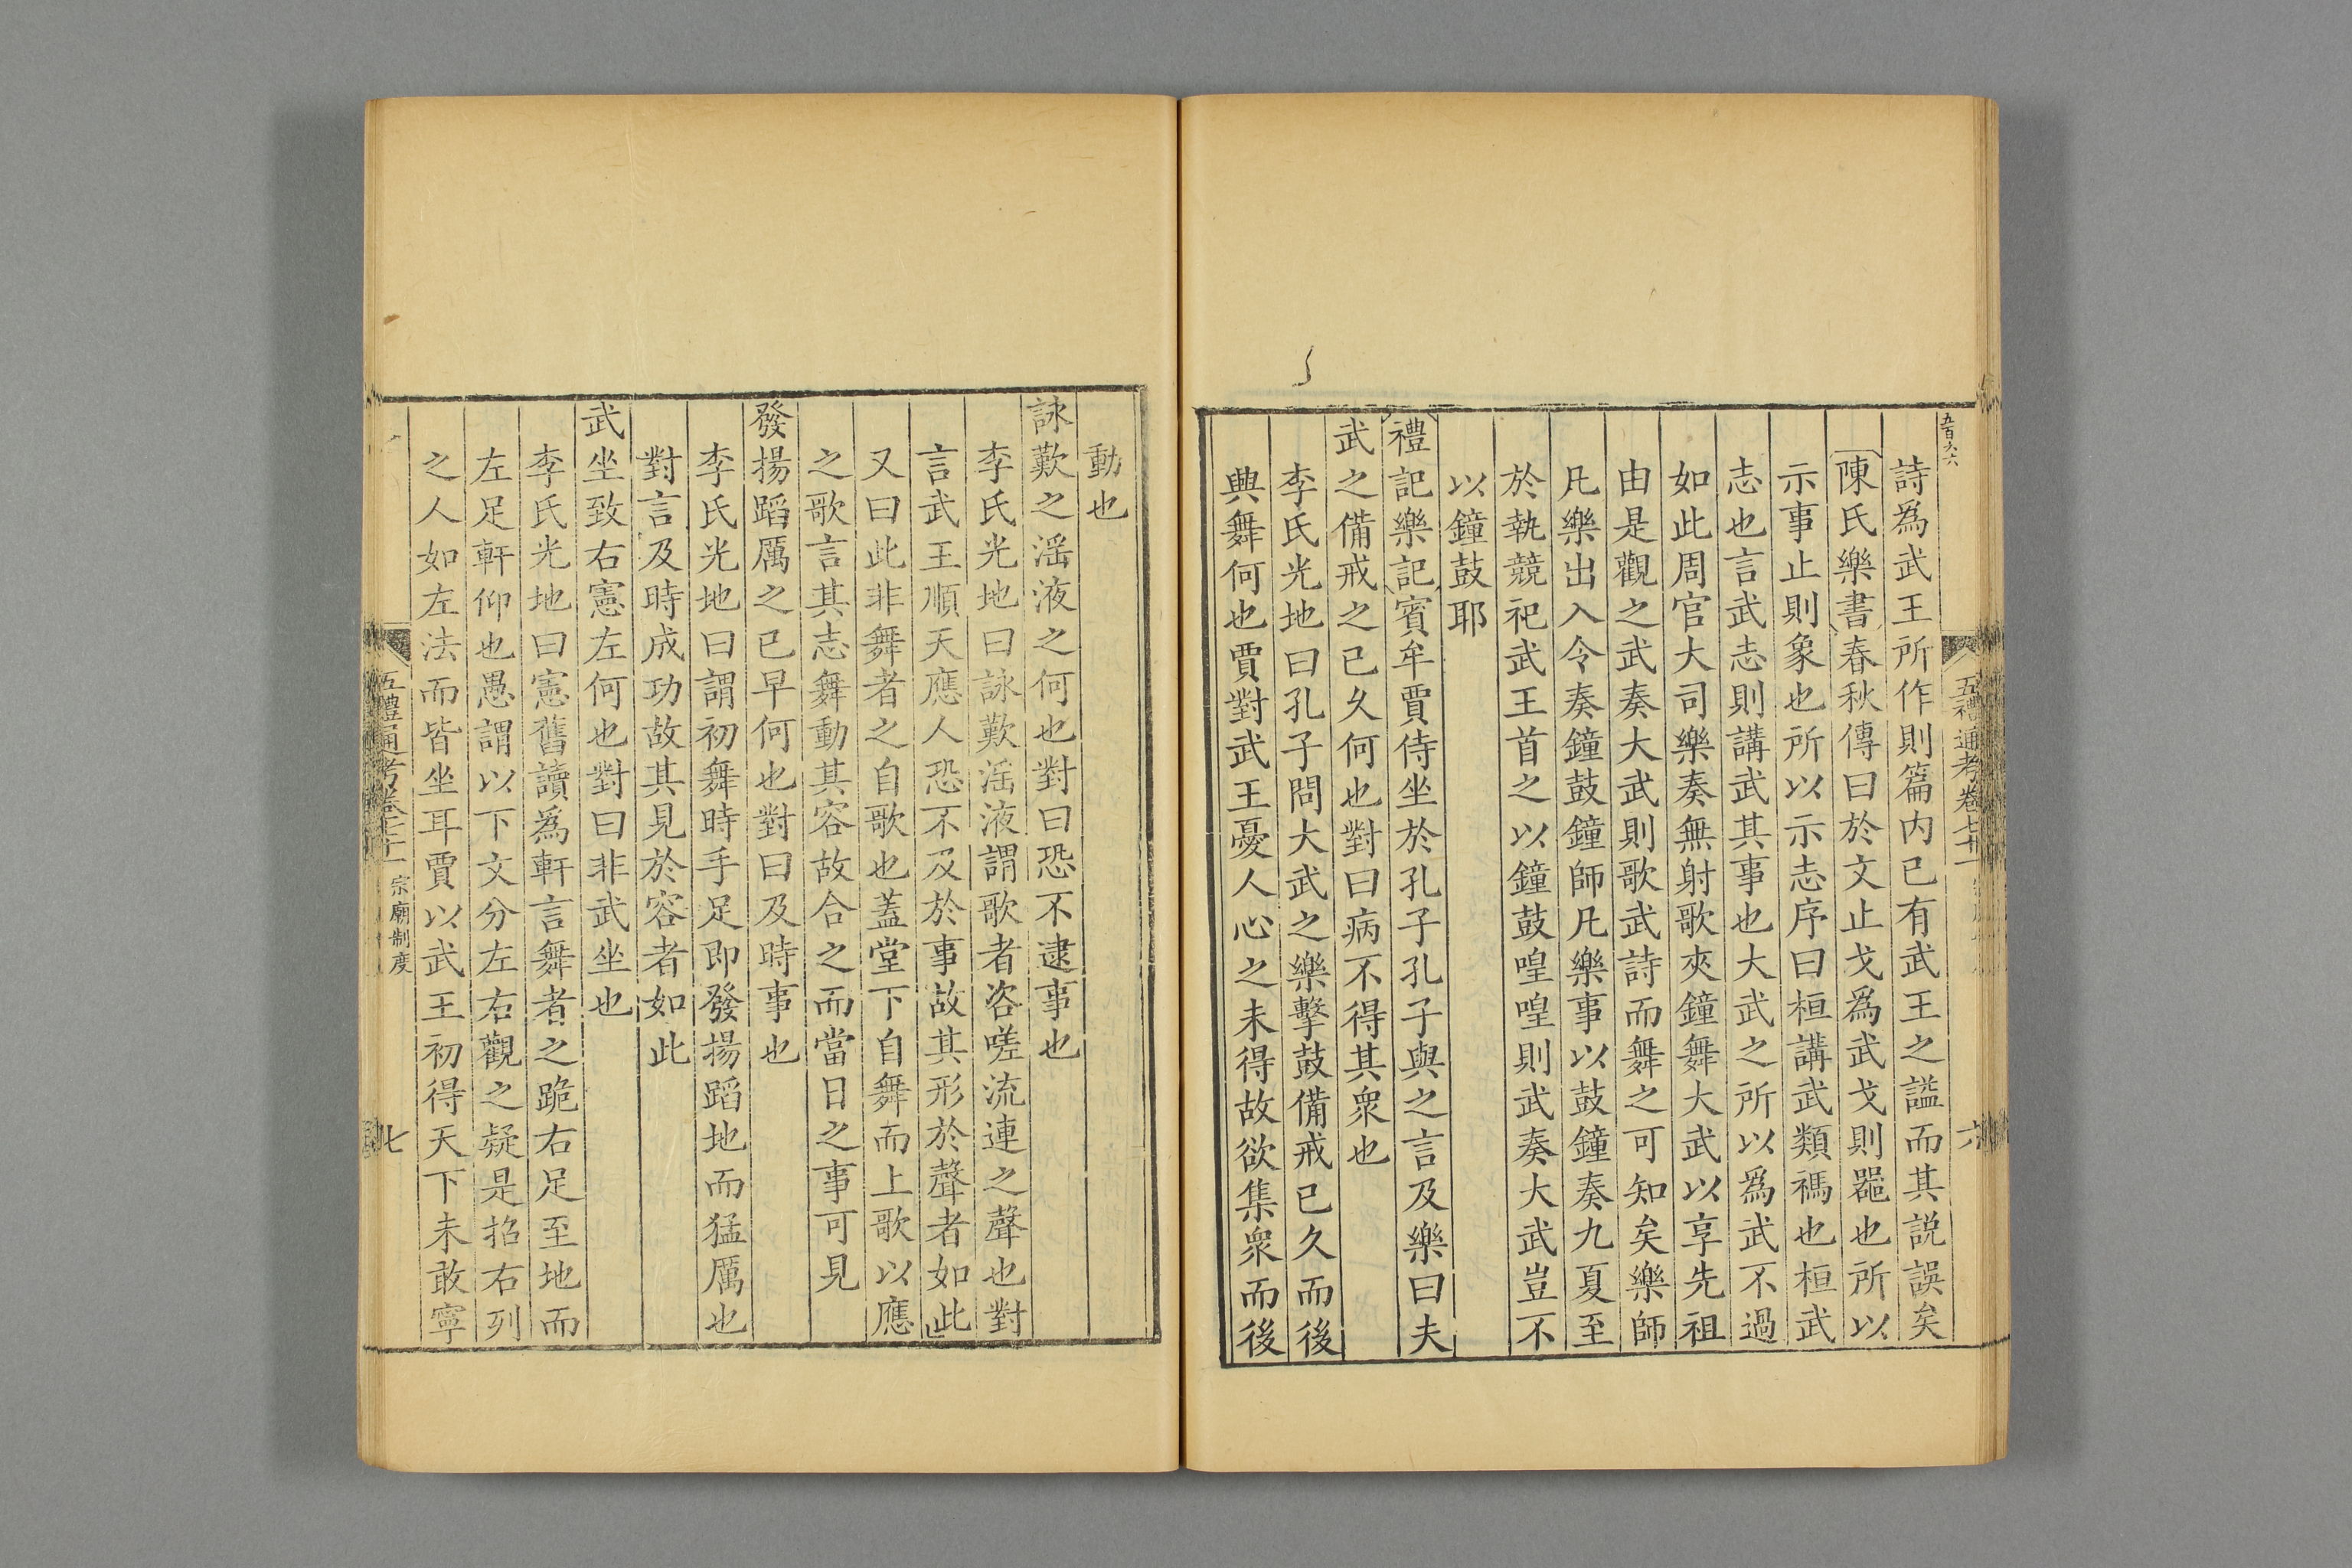 五百六六
五禮通考卷七十一
六
詩為武王所作則篇内已有武王之謚而其説誤矣
陳氏樂書春秋傳曰於文止戈爲武戈則噐也所以
示事止則象也所以示志序曰桓講武類禡也桓武
志也言武志則講武其事也大武之所以爲武不過
如此周官大司樂奏無射歌夾鐘舞大武以享先祖
由是觀之武奏大武則歌武詩而舞之可知矣樂師
凡樂出入令奏鐘鼓鐘師凡樂事以鼓鐘奏九夏至
於執競祀武王首之以鐘鼓喤喤則武奏大武豈不
以鐘鼓耶
禮記樂記賓牟賈侍坐於孔子孔子與之言及樂曰夫
武之備戒之已久何也對曰病不得其衆也
李氏光地曰孔子問大武之樂擊鼓備戒已久而後
興舞何也賈對武王憂人心之未得故欲集衆而後
動也
詠歎之淫液之何也對曰恐不逮事也
李氏光地曰詠歎淫液謂歌者咨嗟流連之聲也對
言武王順天應人恐不及於事故其形於聲者如此
又曰此非舞者之自歌也蓋堂下自舞而上歌以應
之歌言其志舞動其容故合之而當日之事可見
發揚蹈厲之已早何也對曰及時事也
李氏光地曰謂初舞時手足即發揚蹈地而猛厲也
對言及時成功故其見於容者如此
武坐致右憲左何也對曰非武坐也
李氏光地曰憲舊讀為軒言舞者之跪右足至地而
左足軒仰也愚謂以下文分左右觀之疑是招右列
之人如左法而皆坐耳賈以武王初得天下未敢寧
五禮通考卷七十一 宗廟制度
七